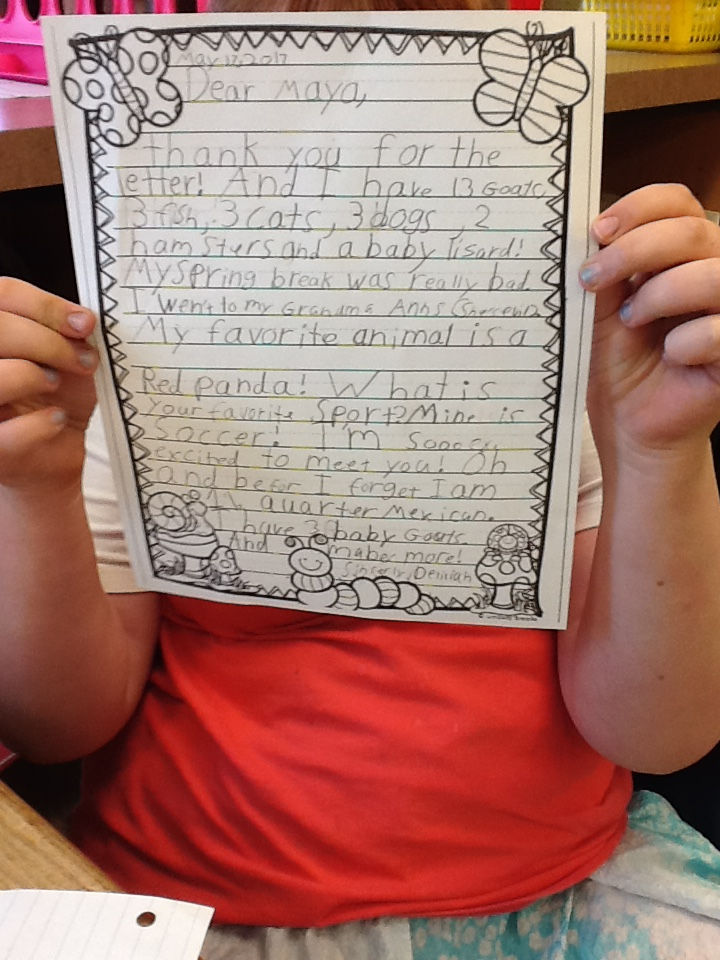 May 12, 2017
Dear Maya,
thank you for the
letter! And I have 13 Goats,
3 fish, 3 cats, 3 dogs, 2
hamsters and a baby lisard!
My spring break was really bad.
I went to my Grandma Anns
My favorite animal is a
Red panda! What is
your favorite Sport? Mine is
Soccer! I'm
excited to meet you! Oh
and befor I forget I am
quarter Mexican.
I have 3 baby Goats.
And mabey more!
Sincerly,